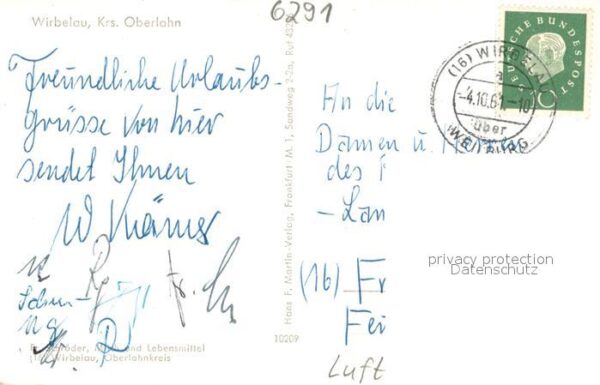 6291
Wirbelau, Krs. Oberlahn
Freundliche Urlaubs-
grüsse von hier
sendet Ihnen
W Krämer
Lebensmittel
Wirbelau, Oberlahnkreis
Hans F. Martin-Verlag, Frankfurt M. 1, Sandweg 2-2a, Ruf
10209
DEUTSCHE BUNDESPOST
10
(16) WIRBELAU
a
-4.10.61.-10
über
WEILBURG
An die
Damen u.
des
-Lan
(16) Fr
Fei
Luft
privacy protection
Datenschutz